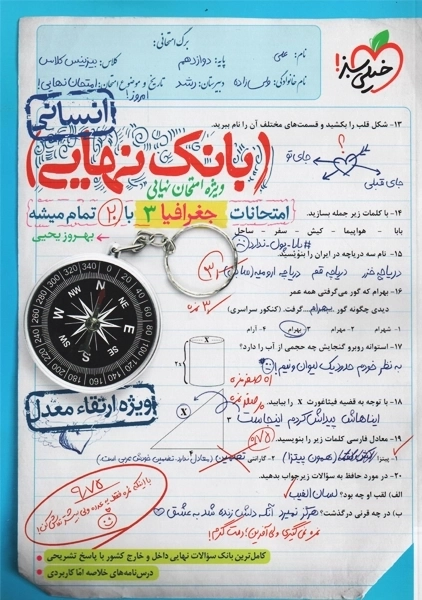 برگ امتحانی:
نام: علمی
پایه: دوازدهم
کلاس: بیزینس کلاس
نام خانوادگی:
دبیرستان: رشد
تاریخ و موضوع امتحان: امتحان نهایی!
امروز!
خیلی سبز!
انسانی
۱۳- شکل قلب را بکشید و قسمت‌های مختلف آن را نام ببرید.
؟
جای تو
جای قبلی
(بانک نهایی)
ویژه امتحان نهایی
امتحانات جغرافیا ۳ با ۲۰ تمام میشه
بهروز یحیی
۱۴- با کلمات زیر جمله بسازید.
بابا - هواپیما - کیش - سفر - ساحل
#بابا_پول_ندارد
۱۵- نام سه دریاچه در ایران را بنویسید.
دریاچه خزر دریاچه قم دریاچه ارومیه
۱۶- بهرام که گور می‌گرفتی همه عمر
دیدی چگونه گور بهرام گرفت. (کنکور سراسری)
۱- شهرام ۲- مهرام ۳- بهرام ۴- آرام
۳ نمره
۱۷- استوانه روبرو گنجایش چه حجمی از آب را دارد؟
به نظر خودم حدود یک لیوان و نیم!
X
2X
0 20 40 60 80 100 120 140 160 180 200 220 240 260 280 300 320 340
N
E
SE
S
W
ویژه ارتقاء معدل
۱۸- با توجه به قضیه فیثاغورث X را بیابید.
ایناهاش پیداش کردم اینجاست
X
۳
۱۹- معادل فارسی کلمات زیر را بنویسید.
۱- پیتزا
(همون پیتزا)
۲- گارانتی
تضمین
۲۰- در مورد حافظ به سؤالات زیر جواب بدهید.
الف) لقب او چه بود؟ لسان الغیب
ب) در چه قرنی درگذشت؟ هرگز نمیرد آنکه دلش زنده شد به عشق
۹/۷۵
کامل‌ترین بانک سؤالات نهایی داخل و خارج کشور با پاسخ تشریحی
درس‌نامه‌های خلاصه امّا کاربردی